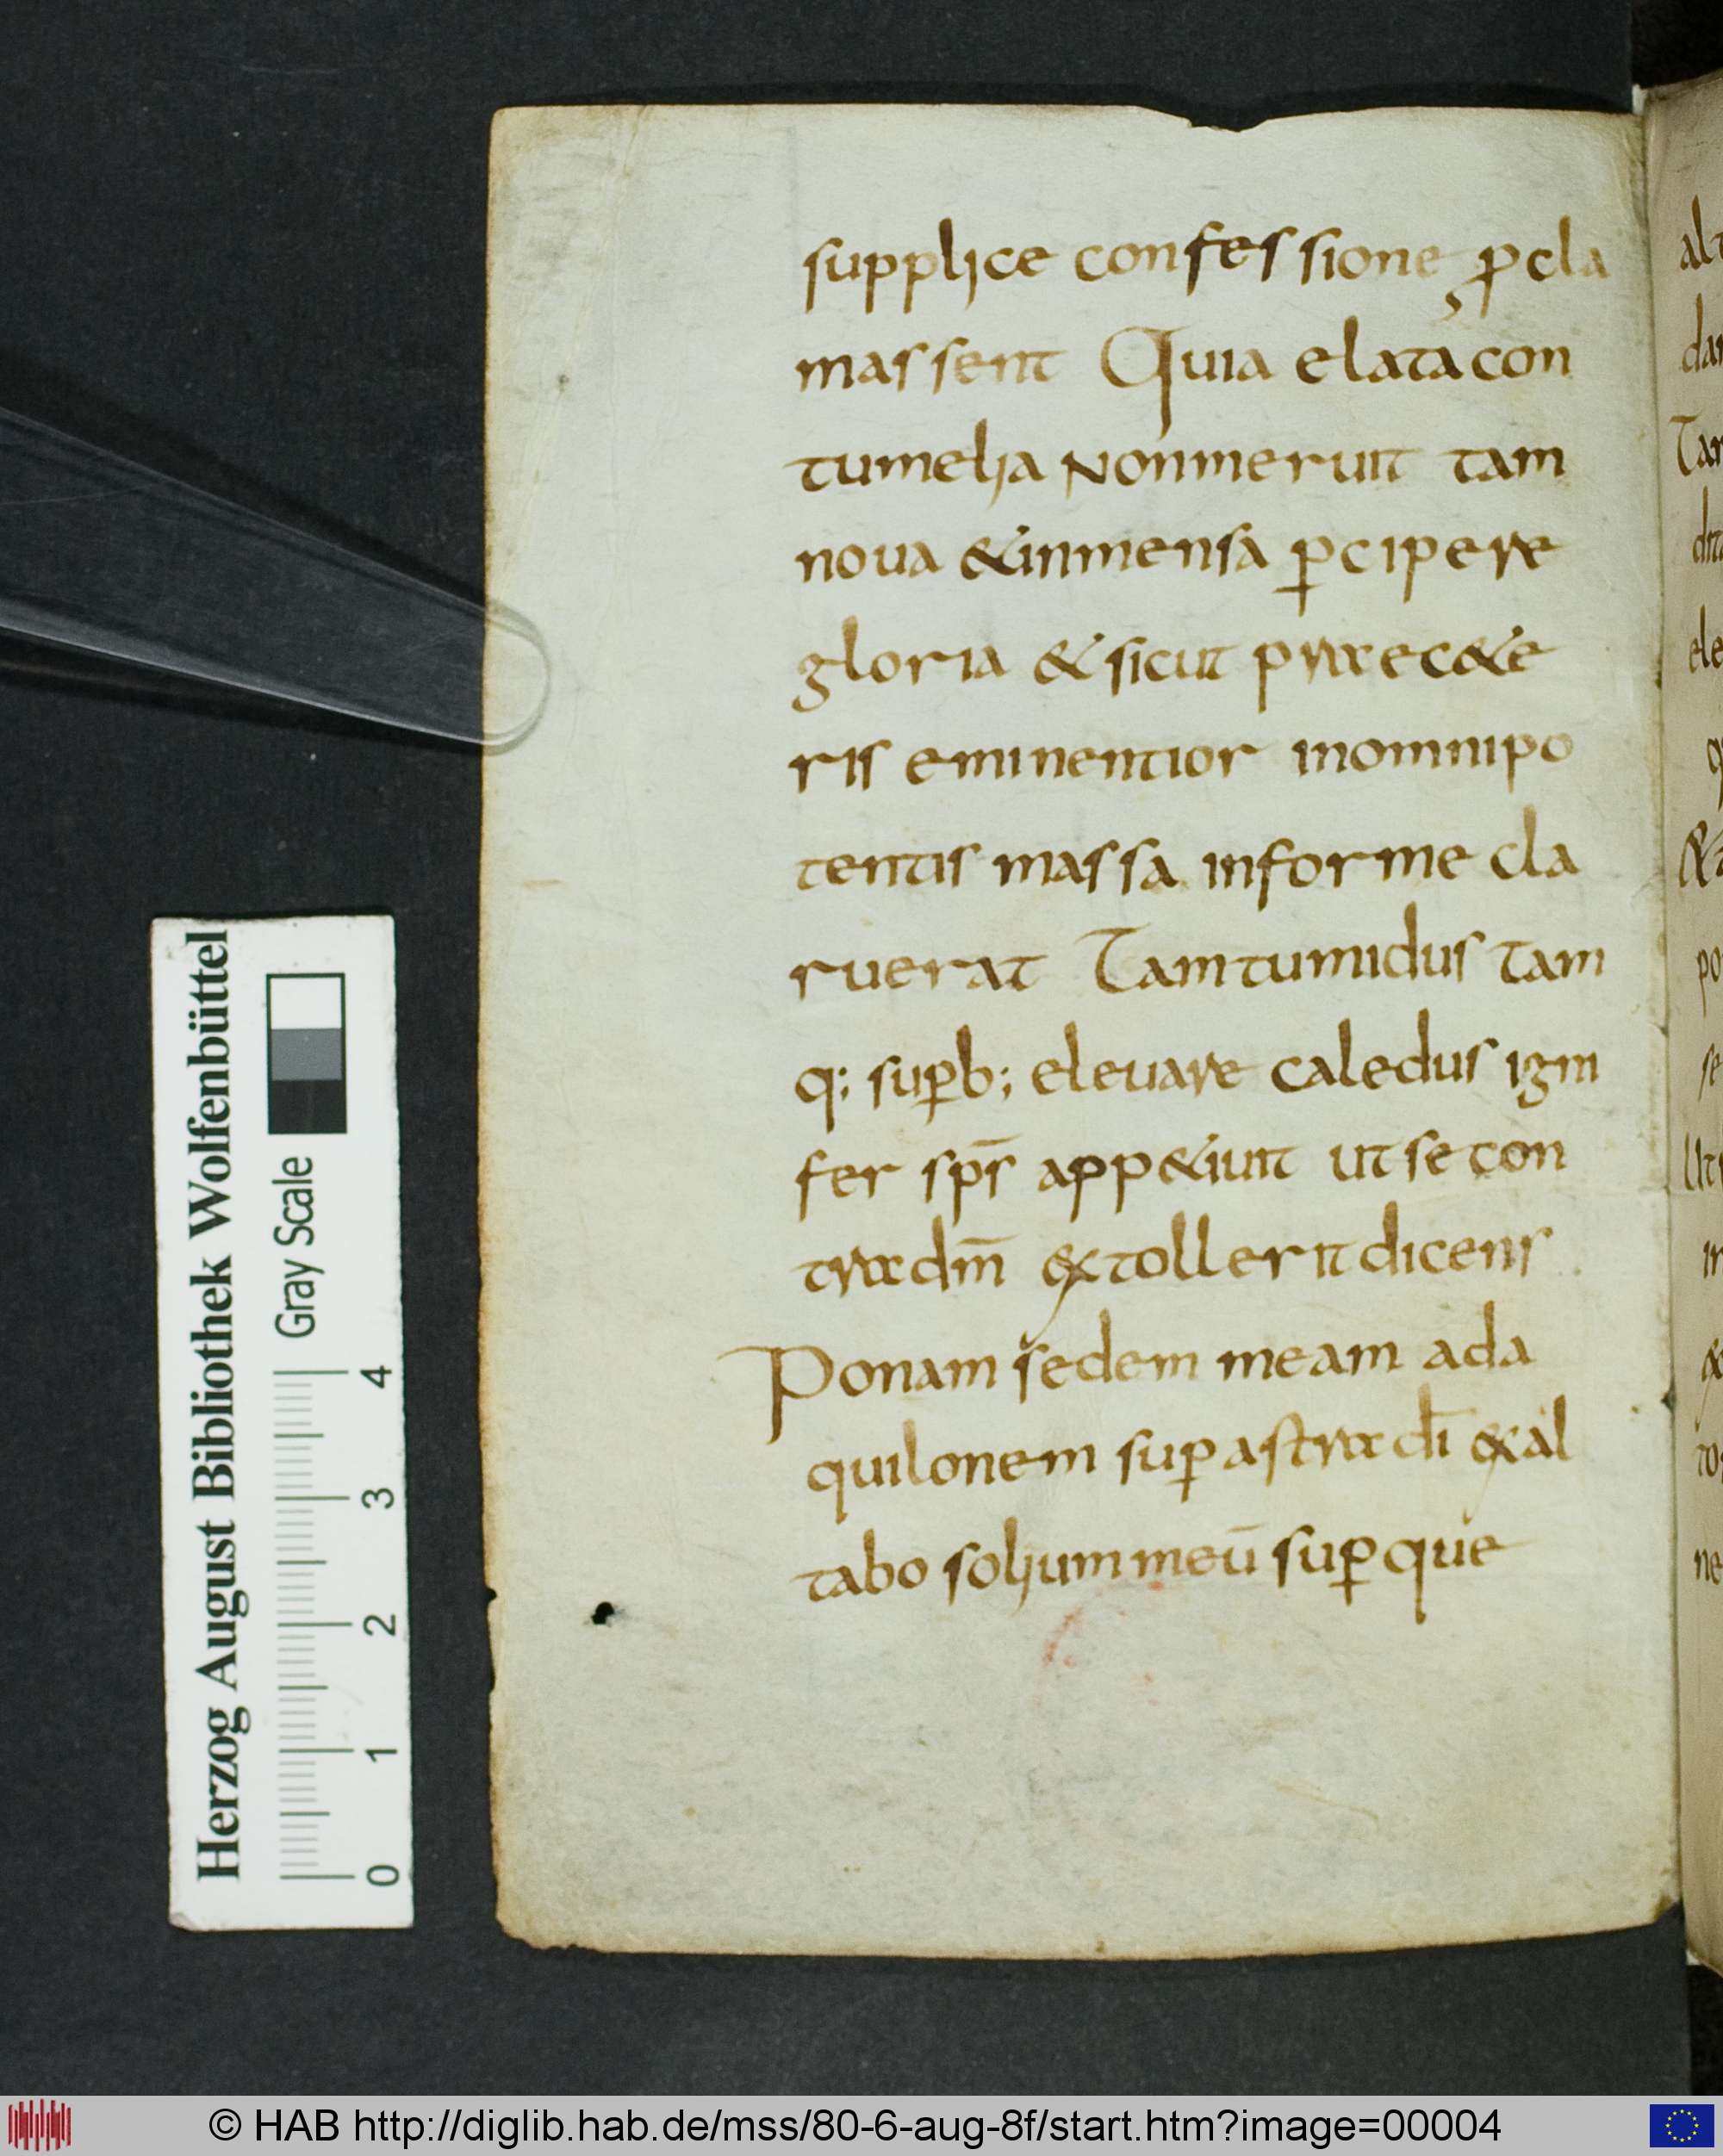 supplice confessione ꝓcla
massent Quia elata con
tumelia Non meruit tam
noua & inmensa ꝑcipere
gloria & sicut prae c&e
ris eminentior in omnipo
tentis massa informe cla
ruerat Tam tumidus tam
q; suꝑb; eleuare caledus igni
fer sp̄s app&iuit ut se con
tra dm̄ extollerit dicens
Ponam sedem meam ad a
quilonem suꝑ astra dī exal
tabo solium meū suꝑ que
al
dar
Tar
dita
ele
q
&
po
se
Ut
in
ex
to
ne
Herzog August Bibliothek Wolfenbüttel
Gray Scale
0 1 2 3 4
© HAB http://diglib.hab.de/mss/80-6-aug-8f/start.htm?image=00004